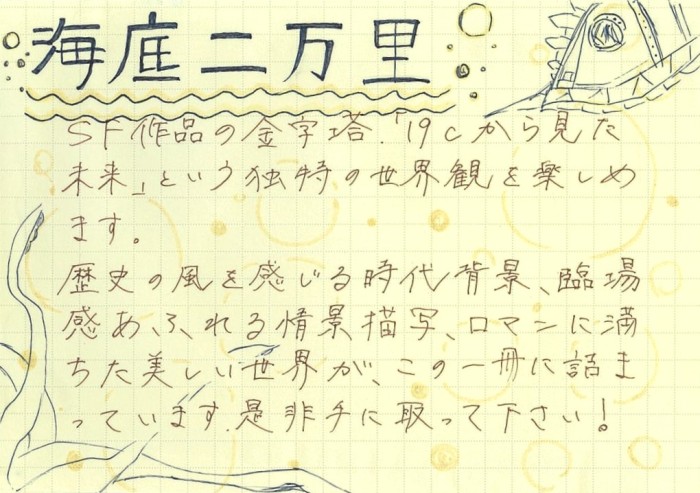 海底二万里
SF作品の金字塔.「19cから見た
未来」という独特の世界観を楽しめ
ます。
歴史の風を感じる時代背景、臨場
感あふれる情景描写、ロマンに満
ちた美しい世界が、この一冊に詰ま
っています.是非手に取って下さい!